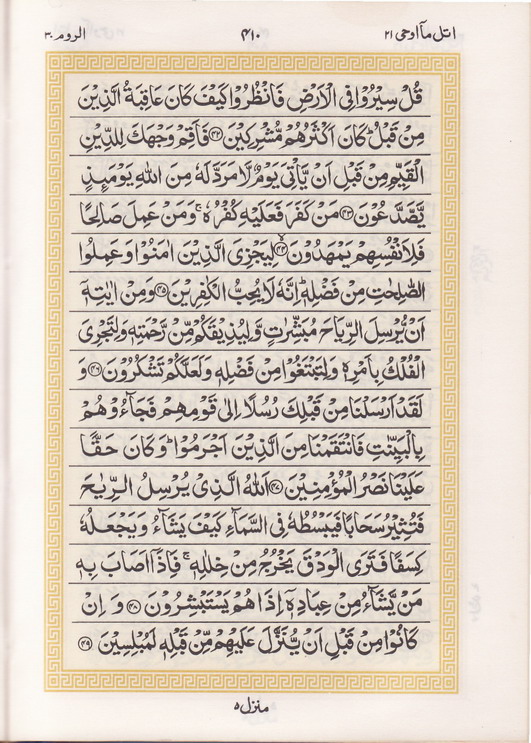 اتل مآ اوحی ۲۱
۴۱۰
الروم ۳۰
قُلْ سِيْرُوْا فِى الْاَرْضِ فَانْظُرُوْا كَيْفَ كَانَ عَاقِبَةُ الَّذِيْنَ
مِنْ قَبْلُ ؕ كَانَ اَكْثَرُهُمْ مُّشْرِكِيْنَ ﴿۴۲﴾ فَاَقِمْ وَجْهَكَ لِلدِّيْنِ
الْقَيِّمِ مِنْ قَبْلِ اَنْ يَّاْتِىَ يَوْمٌ لَّا مَرَدَّ لَهٗ مِنَ اللّٰهِ يَوْمَئِذٍ
يَّصَّدَّعُوْنَ ﴿۴۳﴾ مَنْ كَفَرَ فَعَلَيْهِ كُفْرُهٗ ۚ وَمَنْ عَمِلَ صَالِحًا
فَلِاَنْفُسِهِمْ يَمْهَدُوْنَ ﴿۴۴﴾ لِيَجْزِىَ الَّذِيْنَ اٰمَنُوْا وَعَمِلُوا
الصّٰلِحٰتِ مِنْ فَضْلِهٖ ؕ اِنَّهٗ لَا يُحِبُّ الْكٰفِرِيْنَ ﴿۴۵﴾ وَمِنْ اٰيٰتِهٖۤ
اَنْ يُّرْسِلَ الرِّيَاحَ مُبَشِّرٰتٍ وَّلِيُذِيْقَكُمْ مِّنْ رَّحْمَتِهٖ وَلِتَجْرِىَ
الْفُلْكُ بِاَمْرِهٖ وَلِتَبْتَغُوْا مِنْ فَضْلِهٖ وَلَعَلَّكُمْ تَشْكُرُوْنَ ﴿۴۶﴾ وَ
لَقَدْ اَرْسَلْنَا مِنْ قَبْلِكَ رُسُلًا اِلٰى قَوْمِهِمْ فَجَآءُوْهُمْ
بِالْبَيِّنٰتِ فَانْتَقَمْنَا مِنَ الَّذِيْنَ اَجْرَمُوْا ؕ وَكَانَ حَقًّا
عَلَيْنَا نَصْرُ الْمُؤْمِنِيْنَ ﴿۴۷﴾ اَللّٰهُ الَّذِىْ يُرْسِلُ الرِّيٰحَ
فَتُثِيْرُ سَحَابًا فَيَبْسُطُهٗ فِى السَّمَآءِ كَيْفَ يَشَآءُ وَيَجْعَلُهٗ
كِسَفًا فَتَرَى الْوَدْقَ يَخْرُجُ مِنْ خِلٰلِهٖ ۚ فَاِذَاۤ اَصَابَ بِهٖ
مَنْ يَّشَآءُ مِنْ عِبَادِهٖۤ اِذَا هُمْ يَسْتَبْشِرُوْنَ ﴿۴۸﴾ وَ اِنْ
كَانُوْا مِنْ قَبْلِ اَنْ يُّنَزَّلَ عَلَيْهِمْ مِّنْ قَبْلِهٖ لَمُبْلِسِيْنَ ﴿۴۹﴾
منزل ۵